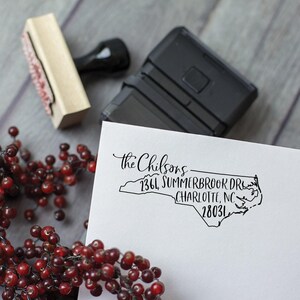 the Chilsons
1361 SUMMERBROOK DR.
CHARLOTTE, NC
28031